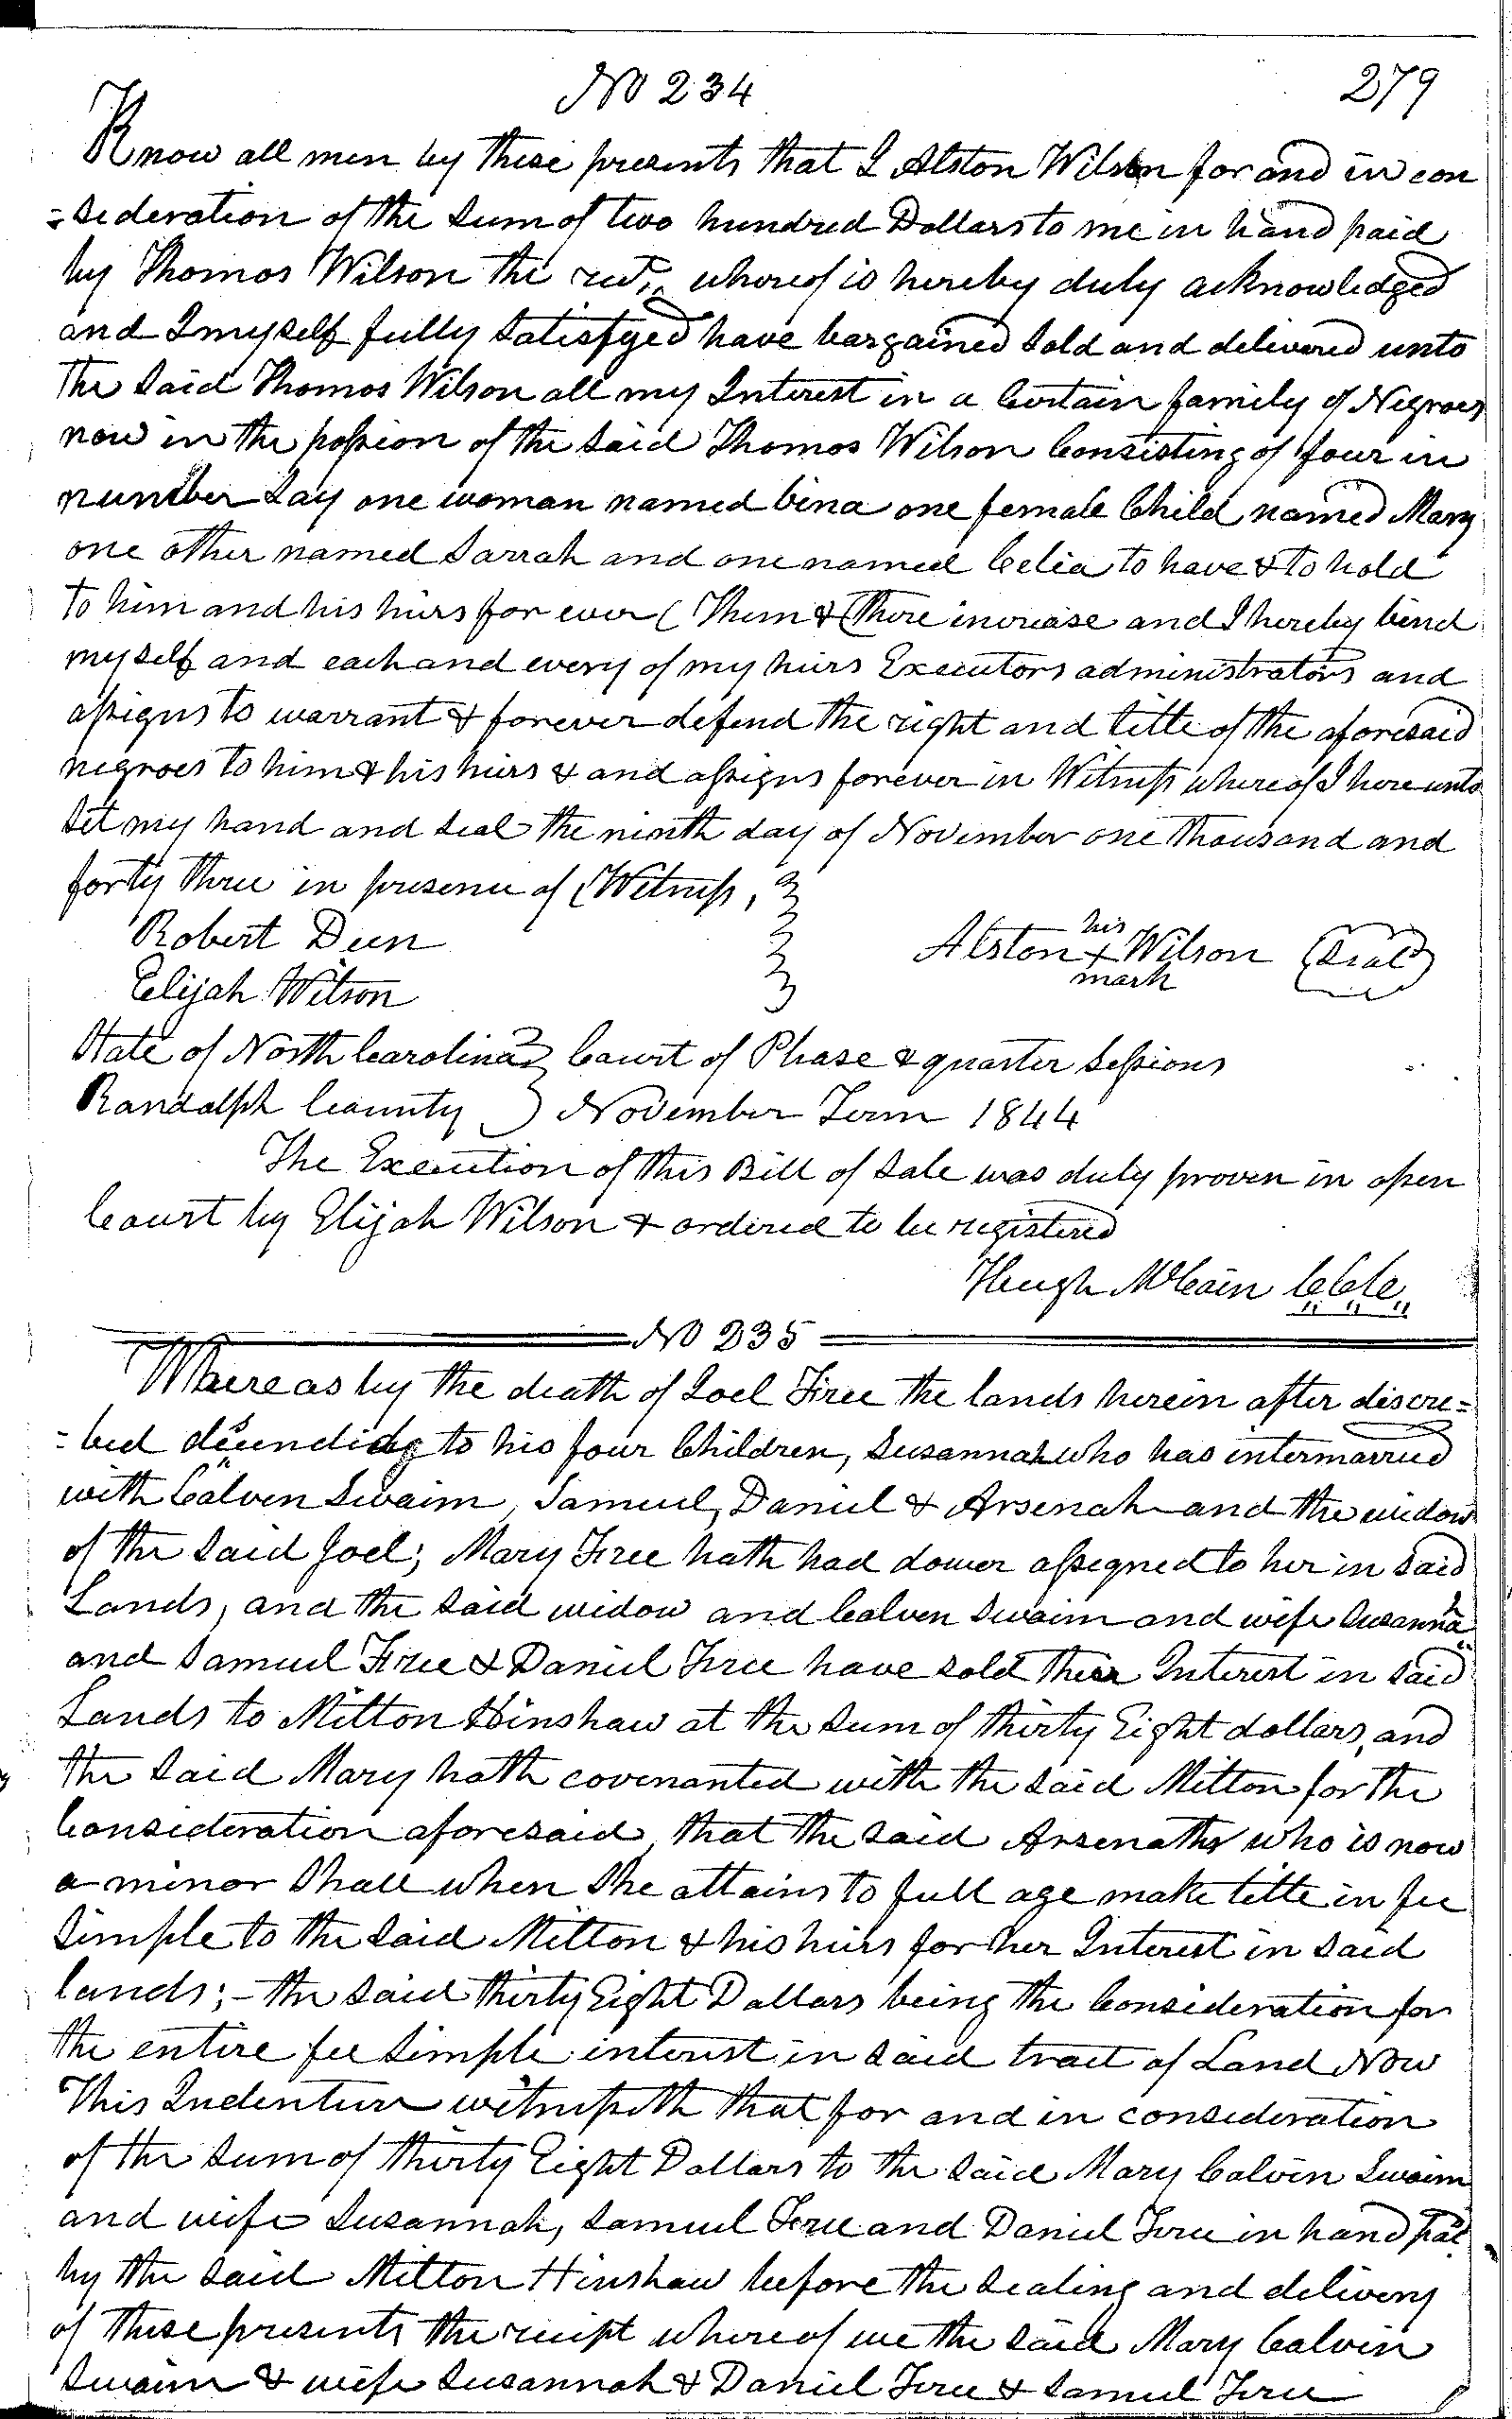 No 234
279
Know all men by these presents that I Alston Wilson for and in con
=sideration of the sum of two hundred Dollars to me in hand paid
by Thomas Wilson the rect, whereof is hereby duly acknowledged
and I myself fully satisfyed have bargained sold and delivered unto
the said Thomas Wilson all my Interest in a Certain family of Negroes
now in the possion of the said Thomas Wilson Consisting of four in
number Say one woman named Cina one female Child named Mary
one other named Sarrah and one named Celia to have & to hold
to him and his heirs for ever (Them & There increase and I hereby bind
myself and each and every of my heirs Executors administrators and
assigns to warrant & forever defend the right and title of the aforesaid
negroes to him & his heirs & and assigns forever in Witness whereof I here unto
set my hand and seal the ninth day of November one thousand and
forty three in presence of (Witness,
Robert Deen
Elijah Wilson
his
Alston + Wilson (Seal)
mark
State of North Carolina } Court of Please & quarter Sessions
Randolph County } November Term 1844
The Execution of this Bill of Sale was duly proven in open
Court by Elijah Wilson & ordered to be registered
Hugh McCain CCle
No 235
Whereas by the death of Joel Free the lands herein after discre=
=bed descending to his four Children, Susannah who has intermarried
with Calven Swaim, Samuel, Daniel & Arsenah and the widow
of the said Joel; Mary Free hath had dower assigned to her in said
Lands, and the said widow and Calven Swaim and wife Susanna
and Samuel Free & Daniel Free have sold their Interest in said
Lands to Milton Hinshaw at the sum of thirty Eight dollars, and
the said Mary hath covenanted with the said Milton for the
Consideration aforesaid, that the said Arsenath who is now
a minor Shall when She attains to full age make title in fee
Simple to the said Milton & his heirs for her Interest in said
lands; - the said thirty Eight Dollars being the Consideration for
the entire fee simple interest in said tract of Land Now
This Indenture witnesseth that for and in consideration
of the sum of thirty Eight Dollars to the said Mary Calvin Swaim
and wife Susannah, Samuel Free and Daniel Free in hand pai
by the said Milton Hinshaw before the sealing and delivery
of these presents the receipt whereof we the said Mary Calvin
Swaim & wife Susannah & Daniel Free & Samuel Free